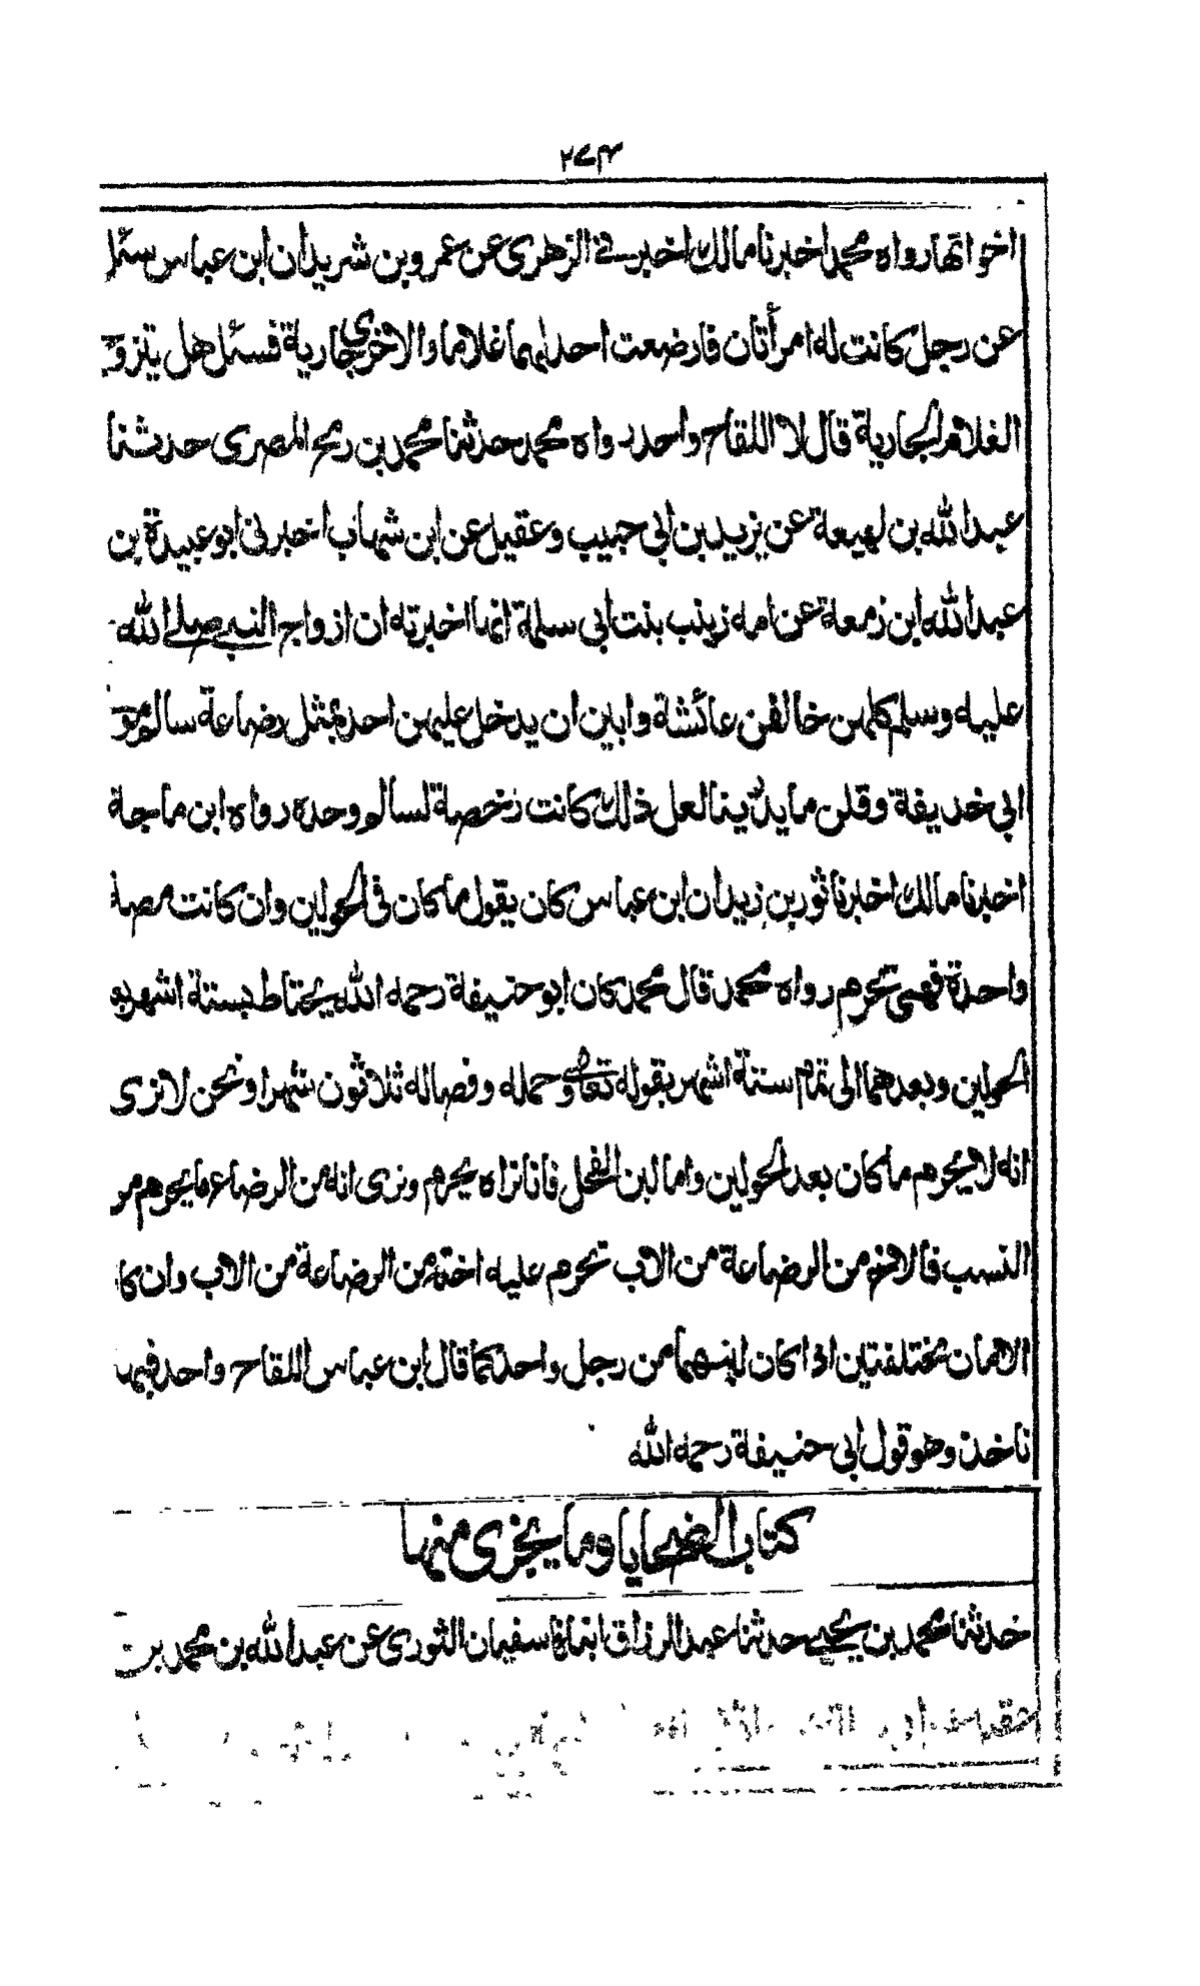 ٢٧٣
اخواتها رواه محمد اخبرنا مالك اخبرني الزهري عن عمرو بن شريد ان ابن عباس سئل
عن رجل كانت له امرأتان فارضعت احدايهما غلاما والاخرى جارية فسئل هل يتزوج
الغلام الجارية قال لا اللقاح واحد رواه محمد حدثنا محمد بن رمح المصرى حدثنا
عبد الله بن لهيعة عن يزيد بن ابي حبيب وعقيل عن ابن شهاب اخبرنى ابو عبيدة بن
عبد الله ابن زمعة عن امه زينب بنت ابي سلمة انها اخبرته ان ازواج النبي صلے الله
عليه وسلم كلهن خالفن عائشة وابين ان يدخل عليهن احد بمثل رضاعة سالم مو
ابي حذيفة وقلن ما يدرينا لعل ذلك كانت رخصة لسالم وحده رواه ابن ماجة
اخبرنا مالك اخبرنا ثور بن زيد ان ابن عباس كان يقول ما كان فى الحولين وان كانت مصة
واحدة فهى تحرم رواه محمد قال محمد كان ابو حنيفة رحمه الله يحتاط بستة اشهر بعد
الحولين وبعدهما الى تمام ستة اشهر بقوله تعالى وحمله وفصاله ثلاثون شهرا ونحن لا نرى
انه لا يحرم ما كان بعد الحولين واما لبن الفحل فانا نراه يحرم ونرى انه من الرضاع ما يحرم من
النسب فالاخ من الرضاعة من الاب تحرم عليه اخته من الرضاعة من الاب وان كا
الامان مختلفتين اذا كان لبنهما من رجل واحد كما قال ابن عباس اللقاح واحد فبهذا
ناخذ وهو قول ابى حنيفة رحمه الله
كتاب الضحايا وما يجزى منها
حدثنا محمد بن يحيے حدثنا عبد الرزاق انبانا سفيان الثورى عن عبد الله بن محمد بن